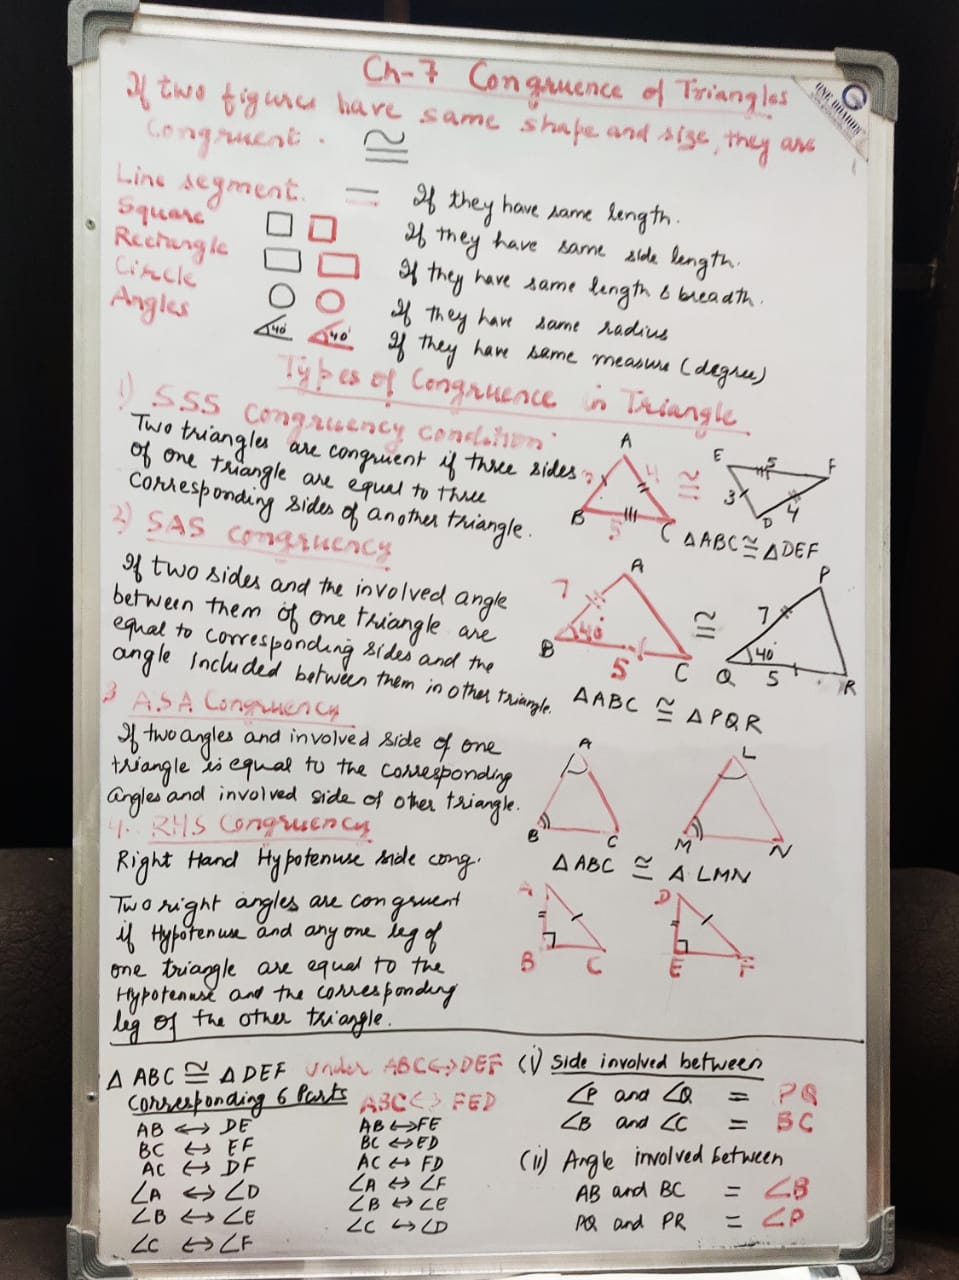 Ch-7 Congruence of Triangles
If two figures have same shape and size, they are
congruent. ≅
ONE BOARDS
Line segment. = If they have same length.
Square If they have same side length.
Rectangle If they have same length & breadth.
Circle If they have same radius
Angles 40° 40° If they have same measure (degree)
Types of Congruence in Triangle
1) SSS Congruency condition
Two triangles are congruent if three sides
of one triangle are equal to three
corresponding sides of another triangle.
A 3 4 B 5 C ≅ E 5 F 3 D 4
ΔABC ≅ ΔDEF
2) SAS Congruency
If two sides and the involved angle
between them of one triangle are
equal to corresponding sides and the
angle included between them in other triangle.
A 7 40° B 5 C ≅ P 7 40° Q 5 R
ΔABC ≅ ΔPQR
3 ASA Congruency
If two angles and involved side of one
triangle is equal to the corresponding
angles and involved side of other triangle.
A B C L M N
ΔABC ≅ ΔLMN
4. RHS Congruency
Right Hand Hypotenuse side cong.
Two right angles are congruent
if Hypotenuse and any one leg of
one triangle are equal to the
Hypotenuse and the corresponding
leg of the other triangle.
A B C D E F
Δ ABC ≅ Δ DEF under ABC↔DEF
Corresponding 6 Parts
AB ↔ DE
BC ↔ EF
AC ↔ DF
∠A ↔ ∠D
∠B ↔ ∠E
∠C ↔ ∠F
ABC<> FED
AB↔FE
BC ↔ED
AC ↔ FD
∠A ↔ ∠F
∠B ↔ ∠E
∠C ↔∠D
(i) Side involved between
∠P and ∠Q = PQ
∠B and ∠C = BC
(ii) Angle involved between
AB and BC = ∠B
PQ and PR = ∠P